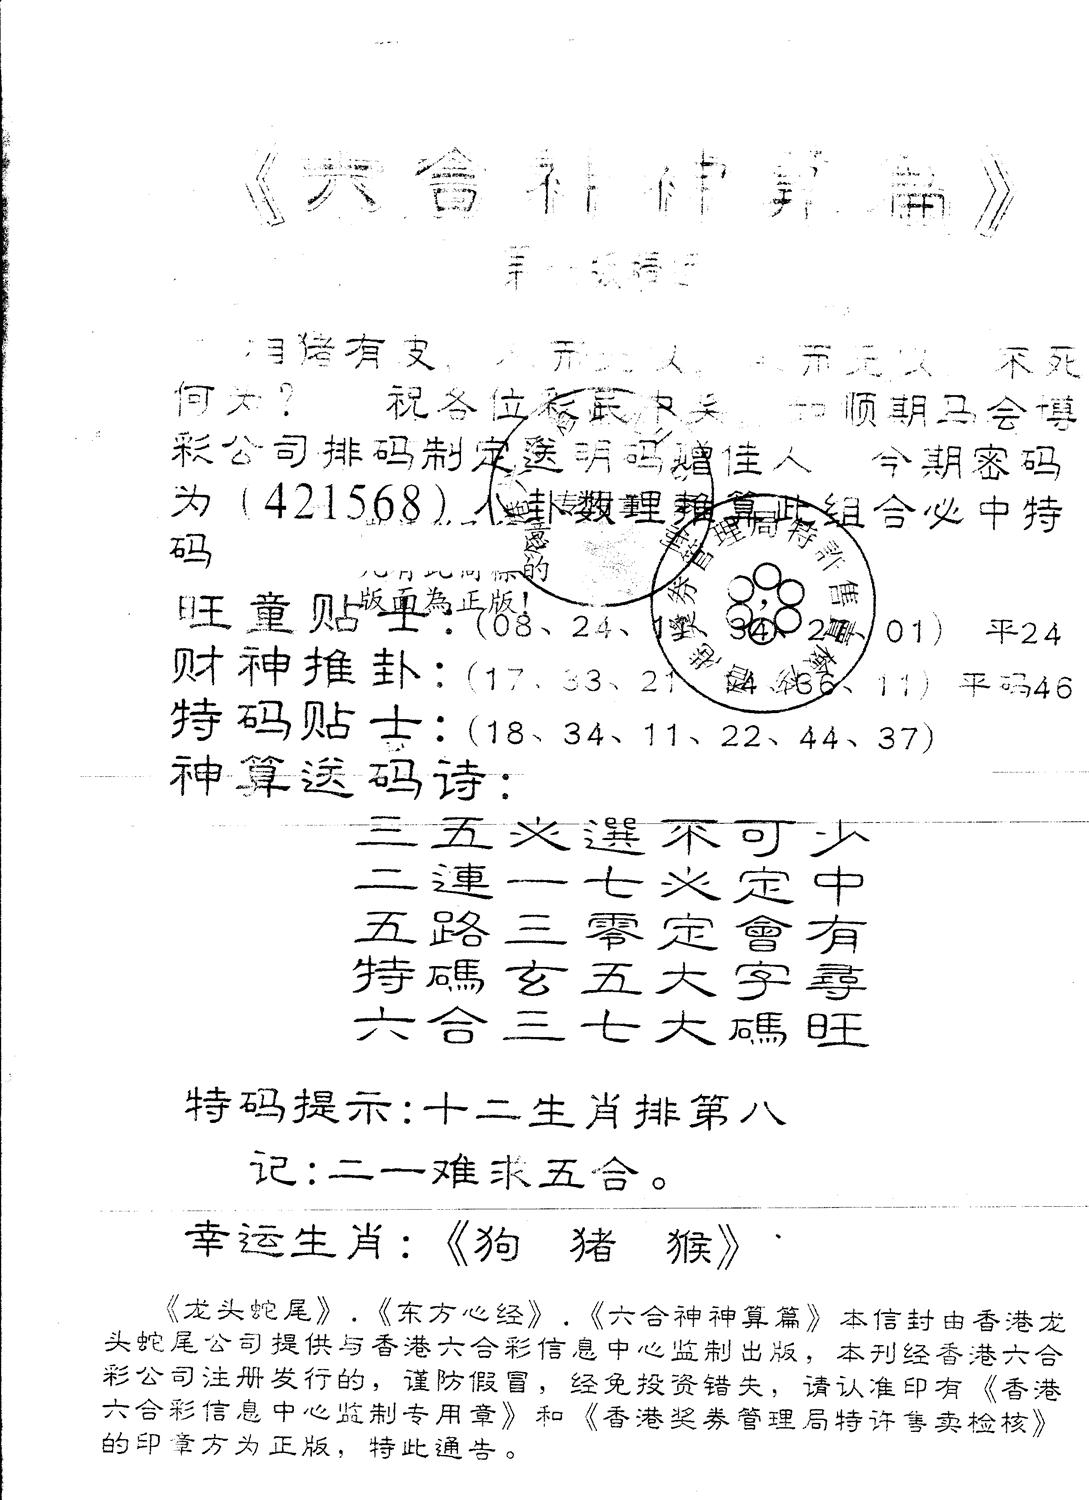 《六會神神算篇》
相猪有皮， 不死
何为？ 祝各位彩民中关 如顺期马会博
彩公司排码制定送明码赠佳人 今期密码
为（421568）八卦数理推算此组合必中特
码
凡有此商标的
版面為正版！
香港奬券管理局特許售賣檢核
旺童贴士：(08、24、1 34、2 01） 平24
财神推卦：(17、33、21、14、36、11）平码46
特码贴士：(18、34、11、22、44、37)
神算送码诗：
三五必選不可少
二連一七必定中
五路三零定會有
特碼玄五大字尋
六合三七大碼旺
特码提示：十二生肖排第八
记：二一难求五合。
幸运生肖：《狗 猪 猴》
《龙头蛇尾》．《东方心经》．《六合神神算篇》本信封由香港龙
头蛇尾公司提供与香港六合彩信息中心监制出版，本刊经香港六合
彩公司注册发行的，谨防假冒，经免投资错失，请认准印有《香港
六合彩信息中心监制专用章》和《香港奖券管理局特许售卖检核》
的印章方为正版，特此通告。